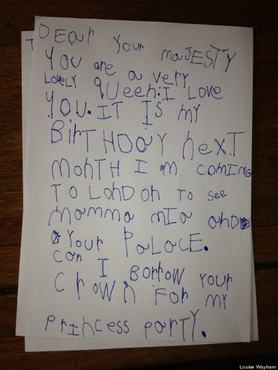 Dear your majesty
You are a very
lovely queen. I love
you. It is my
Birthday next
month I am coming
to London to see
mamma mia and
your Palace.
can I Borrow your
crown for my
princess party.
Louise Wayham